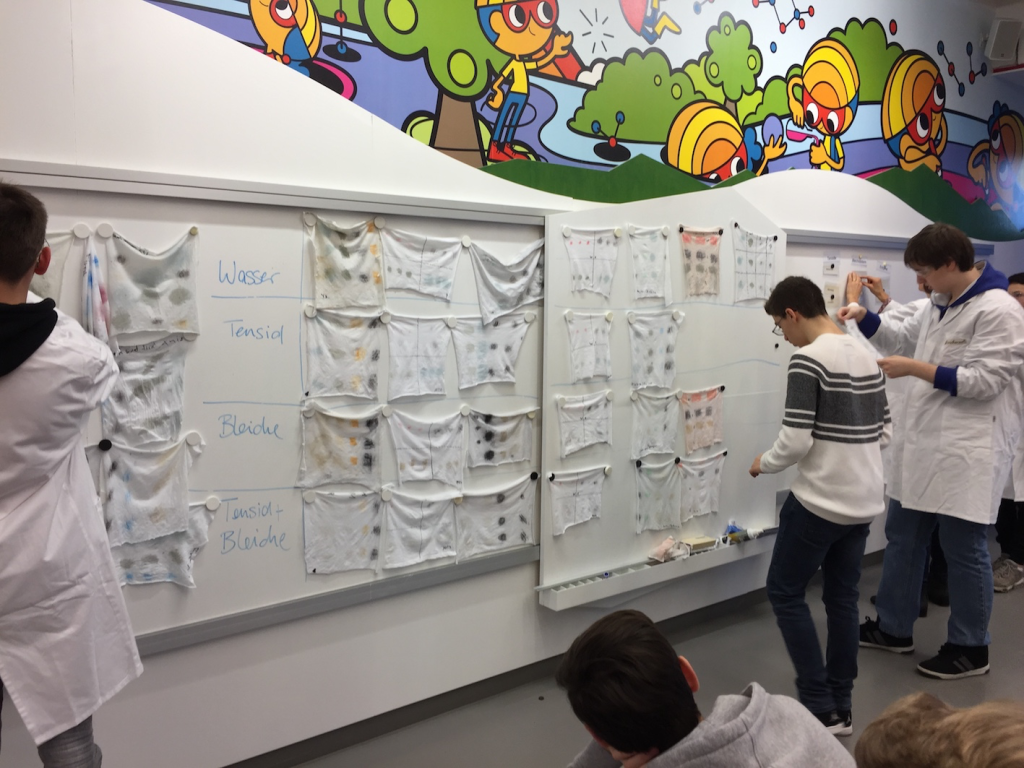 Wasser
Tensid
Bleiche
Tensid +
Bleiche